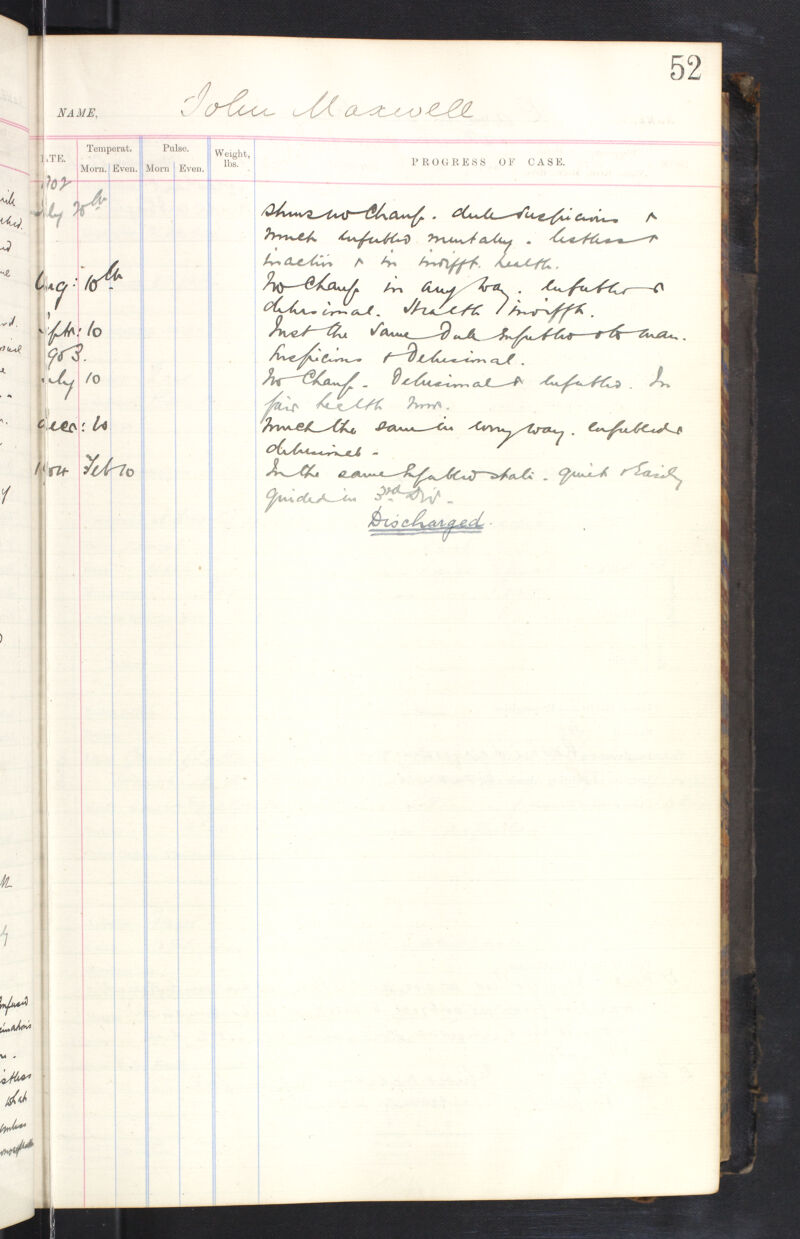 52
NAME, John Maxwell
DATE. Temperat. Pulse. Weight, lbs. PROGRESS OF CASE.
Morn. Even. Morn Even.
1902
July 20th Shows no change. dull suspicious &
much enfeebled mentally. listless &
inactive & in indifft. health.
Aug: 10th No change in any way. enfeebled &
delusional. Health indifft.
Sptr: 10 Just the same dull enfeebled old man.
1903. Suspicious & Delusional.
July 10 No change. Delusional & enfeebled. In
fair health now.
Decr: 10 Much the same in every way. enfeebled &
delusional.
1904 Feb 10 In the same enfeebled state. quiet & Easily
guided in 3rd Div.
Discharged.